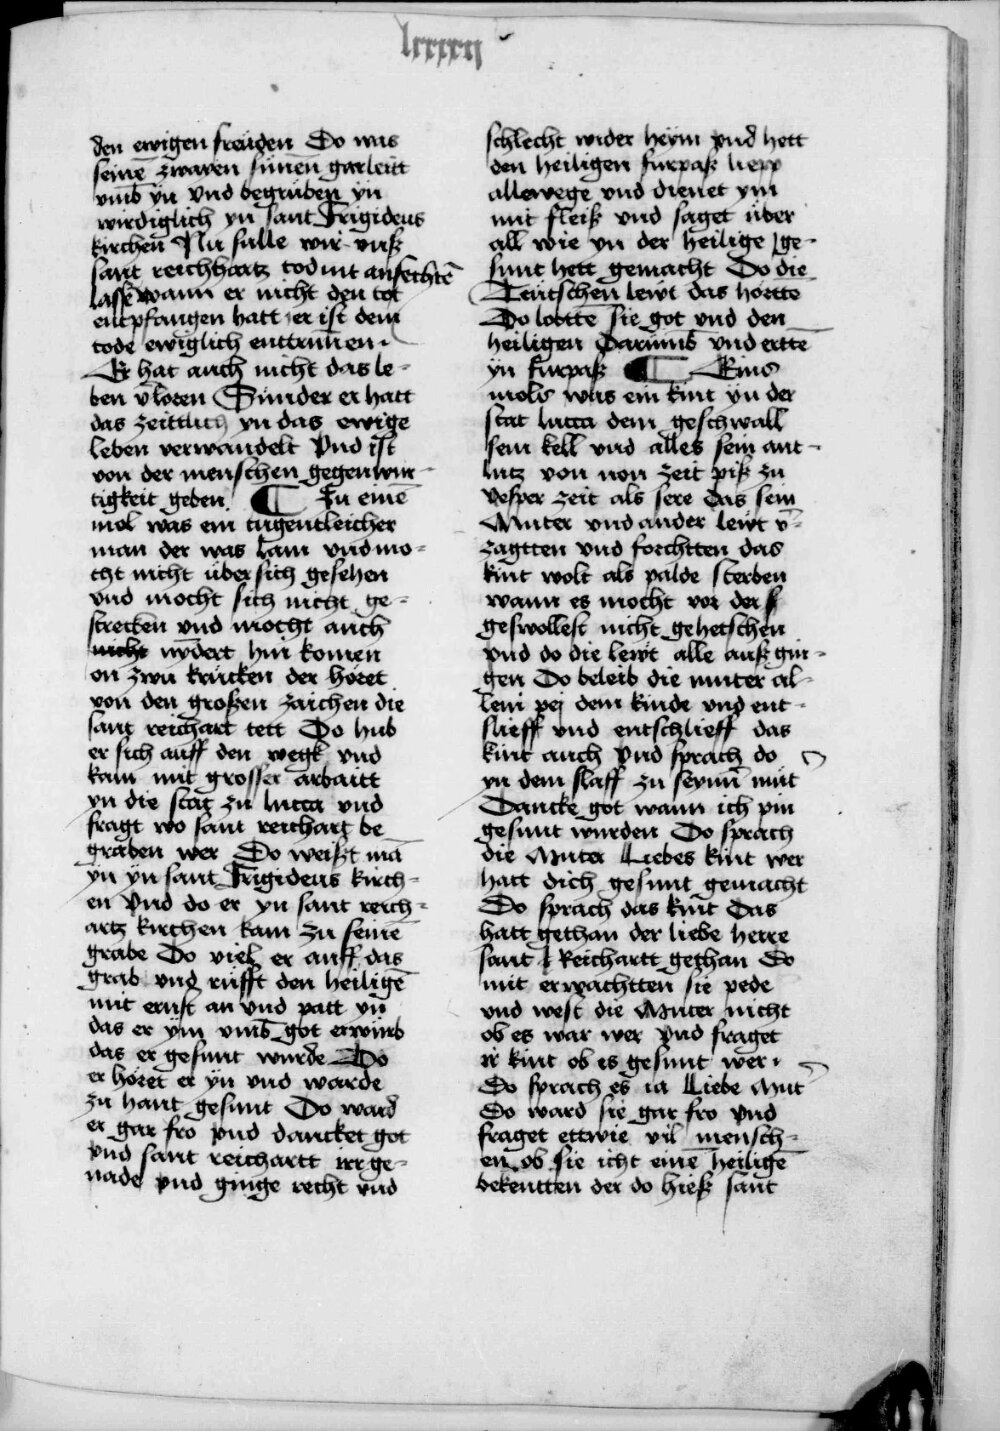 lxxxxij
den ewigen freuden Do was
seinē zwaien sünen gar leitt
vmb yn vnd begruben yn
wirdiglich yn sant Frigideus
kirchen Nu sulle wir vnß
sant reichhartz tod nit anfechtē
lassē wann er nicht den tot
entpfangen hatt er ist dem
tode ewiglich entrunnen
Er hat auch nicht das le-
ben v̄loren Sunder er hatt
das zeittlich yn das ewige
leben verwandelt vnd ist
von der menschen gegenwur-
tigkeit geben ¶ Zu einē
mol was ein tugentleicher
man der was lam vnd mo-
cht nicht über sich gesehen
vnd mocht sich nicht ge-
strecken vnd mocht auch
nicht nydert hin komen
on zwu krucken der höret
von den großen zaichen die
sant reichart tett Do hub
er sich auff den wegk vnd
kam mit grosser arbaitt
yn die stat zu lucca vnd
fragt wo sant reichart be
graben wer Do weißt mā
yn yn sant Frigideus kirch-
en vnd do er yn sant reich-
artz kirchen kam zu seinē
grabe Do viel er auff das
grab vnd rüfft den heiligē
mit ernst an vnd patt yn
das er ym vmb got erwürb
das er gesunt wurde Do
er höret er yn vnd warde
zu hant gesunt Do ward
er gar fro vnd dancket got
vnd sant reichartt irr ge-
nade vnd ginge recht vnd
schlecht wider heym vnd hett
den heiligen furpaß liep
allewege vnd dienet ym
mit fleiß vnd saget über
all wie yn der heilige ge-
sunt hett gemacht Do die
Teütschen lewt das hortte
Do lobtte sie got vnd den
heiligen Darumb vnd erttē
yn furpaß ¶ Eins
mols was ein kint yn der
stat lucca dem geschwall
sein kell vnd alles sein ant-
lutz von non zeit piß zu
vesper zeit als sere das sein
Muter vnd ander lewt v̄-
zagtten vnd forchtten das
kint wolt als palde sterben
wann es mocht vor der
geswollest nicht gehetschen
vnd do die lewt alle auß gin-
gen Do beleib die muter al-
lein pej dem kinde vnd ent-
slieff vnd entschlieff das
kint auch vnd sprach do
yn dem slaff zu seynn̄ mut
Dancke got wann ich pin
gesunt wurden Do sprach
die Muter Liebes kint wer
hatt dich gesunt gemacht
Do sprach das kint Das
hatt gethan der liebe herre
sant Reichartt gethan Do
mit erwachtten sie pede
vnd west die Muter nicht
ob es war wer vnd fraget
ir kint ob es gesunt wer
Do sprach es ia Liebe Mut
Do ward sie gar fro vnd
fraget ettwie vil mensch-
en ob sie icht einē heiligē
bekentten der do hieß sant